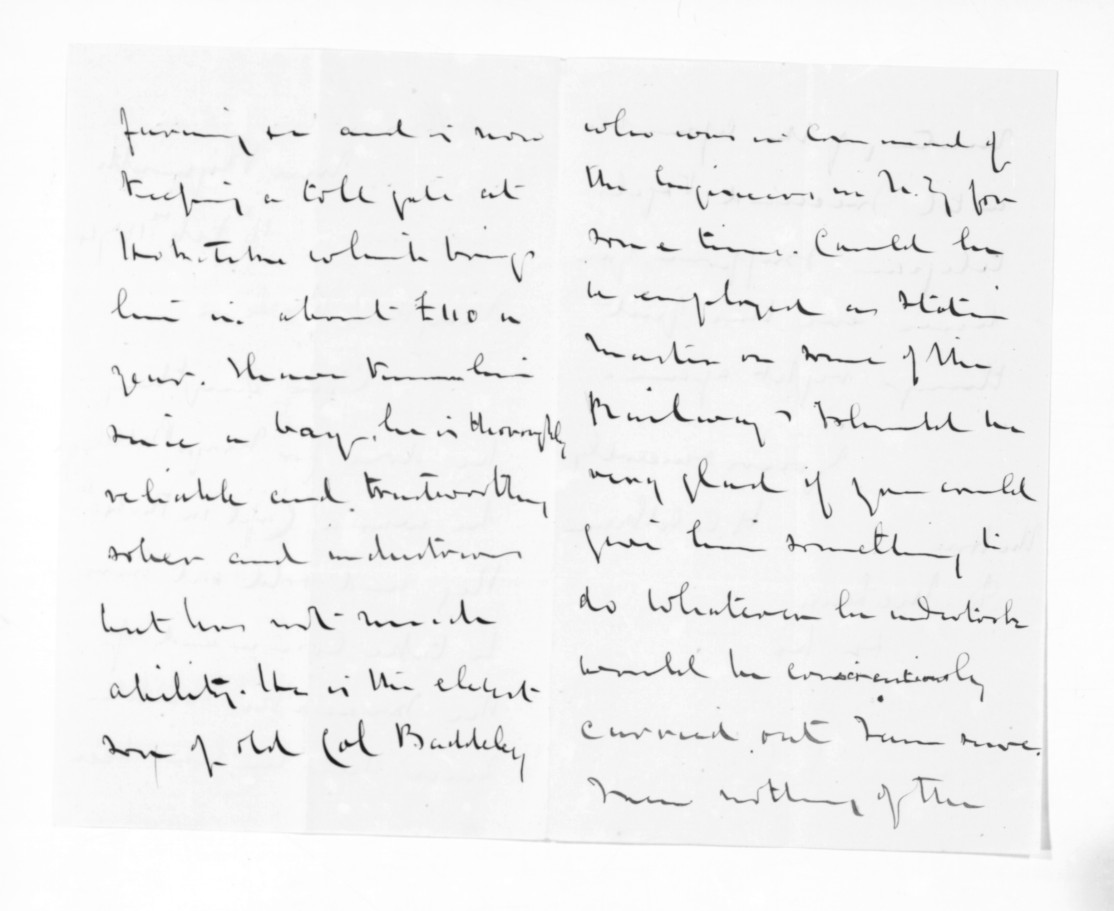 farming on and is now
keeping a toll gate at
Hokitika which brings
him in about £110 a
year. I have known him
since a boy, he is thoroughly
reliable and trustworthy
sober and industrious
but has not much
ability. He is the eldest
son of old Col Baddeley
who was in Command of
the Engineers in N Z for
some time. Could he
be employed as station
master on some of the
Railways I should be
very glad if you could
give him something to
do whatever he undertook
would be conscientiously
carried out I am sure.
I hear nothing of the